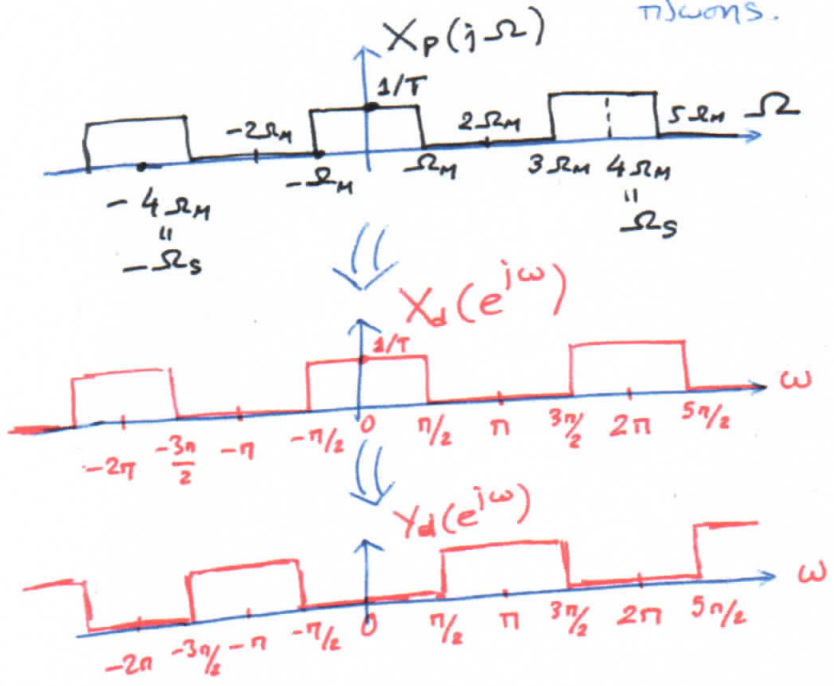 X_p(jΩ)
1/T
-2Ω_M 2Ω_M 5Ω_M Ω
-4Ω_M -Ω_M Ω_M 3Ω_M 4Ω_M
" "
-Ω_s Ω_s
X_d(e^{jω})
1/T
ω
-2π -3π/2 -π -π/2 0 π/2 π 3π/2 2π 5π/2
Y_d(e^{jω})
ω
-2π -3π/2 -π -π/2 0 π/2 π 3π/2 2π 5π/2